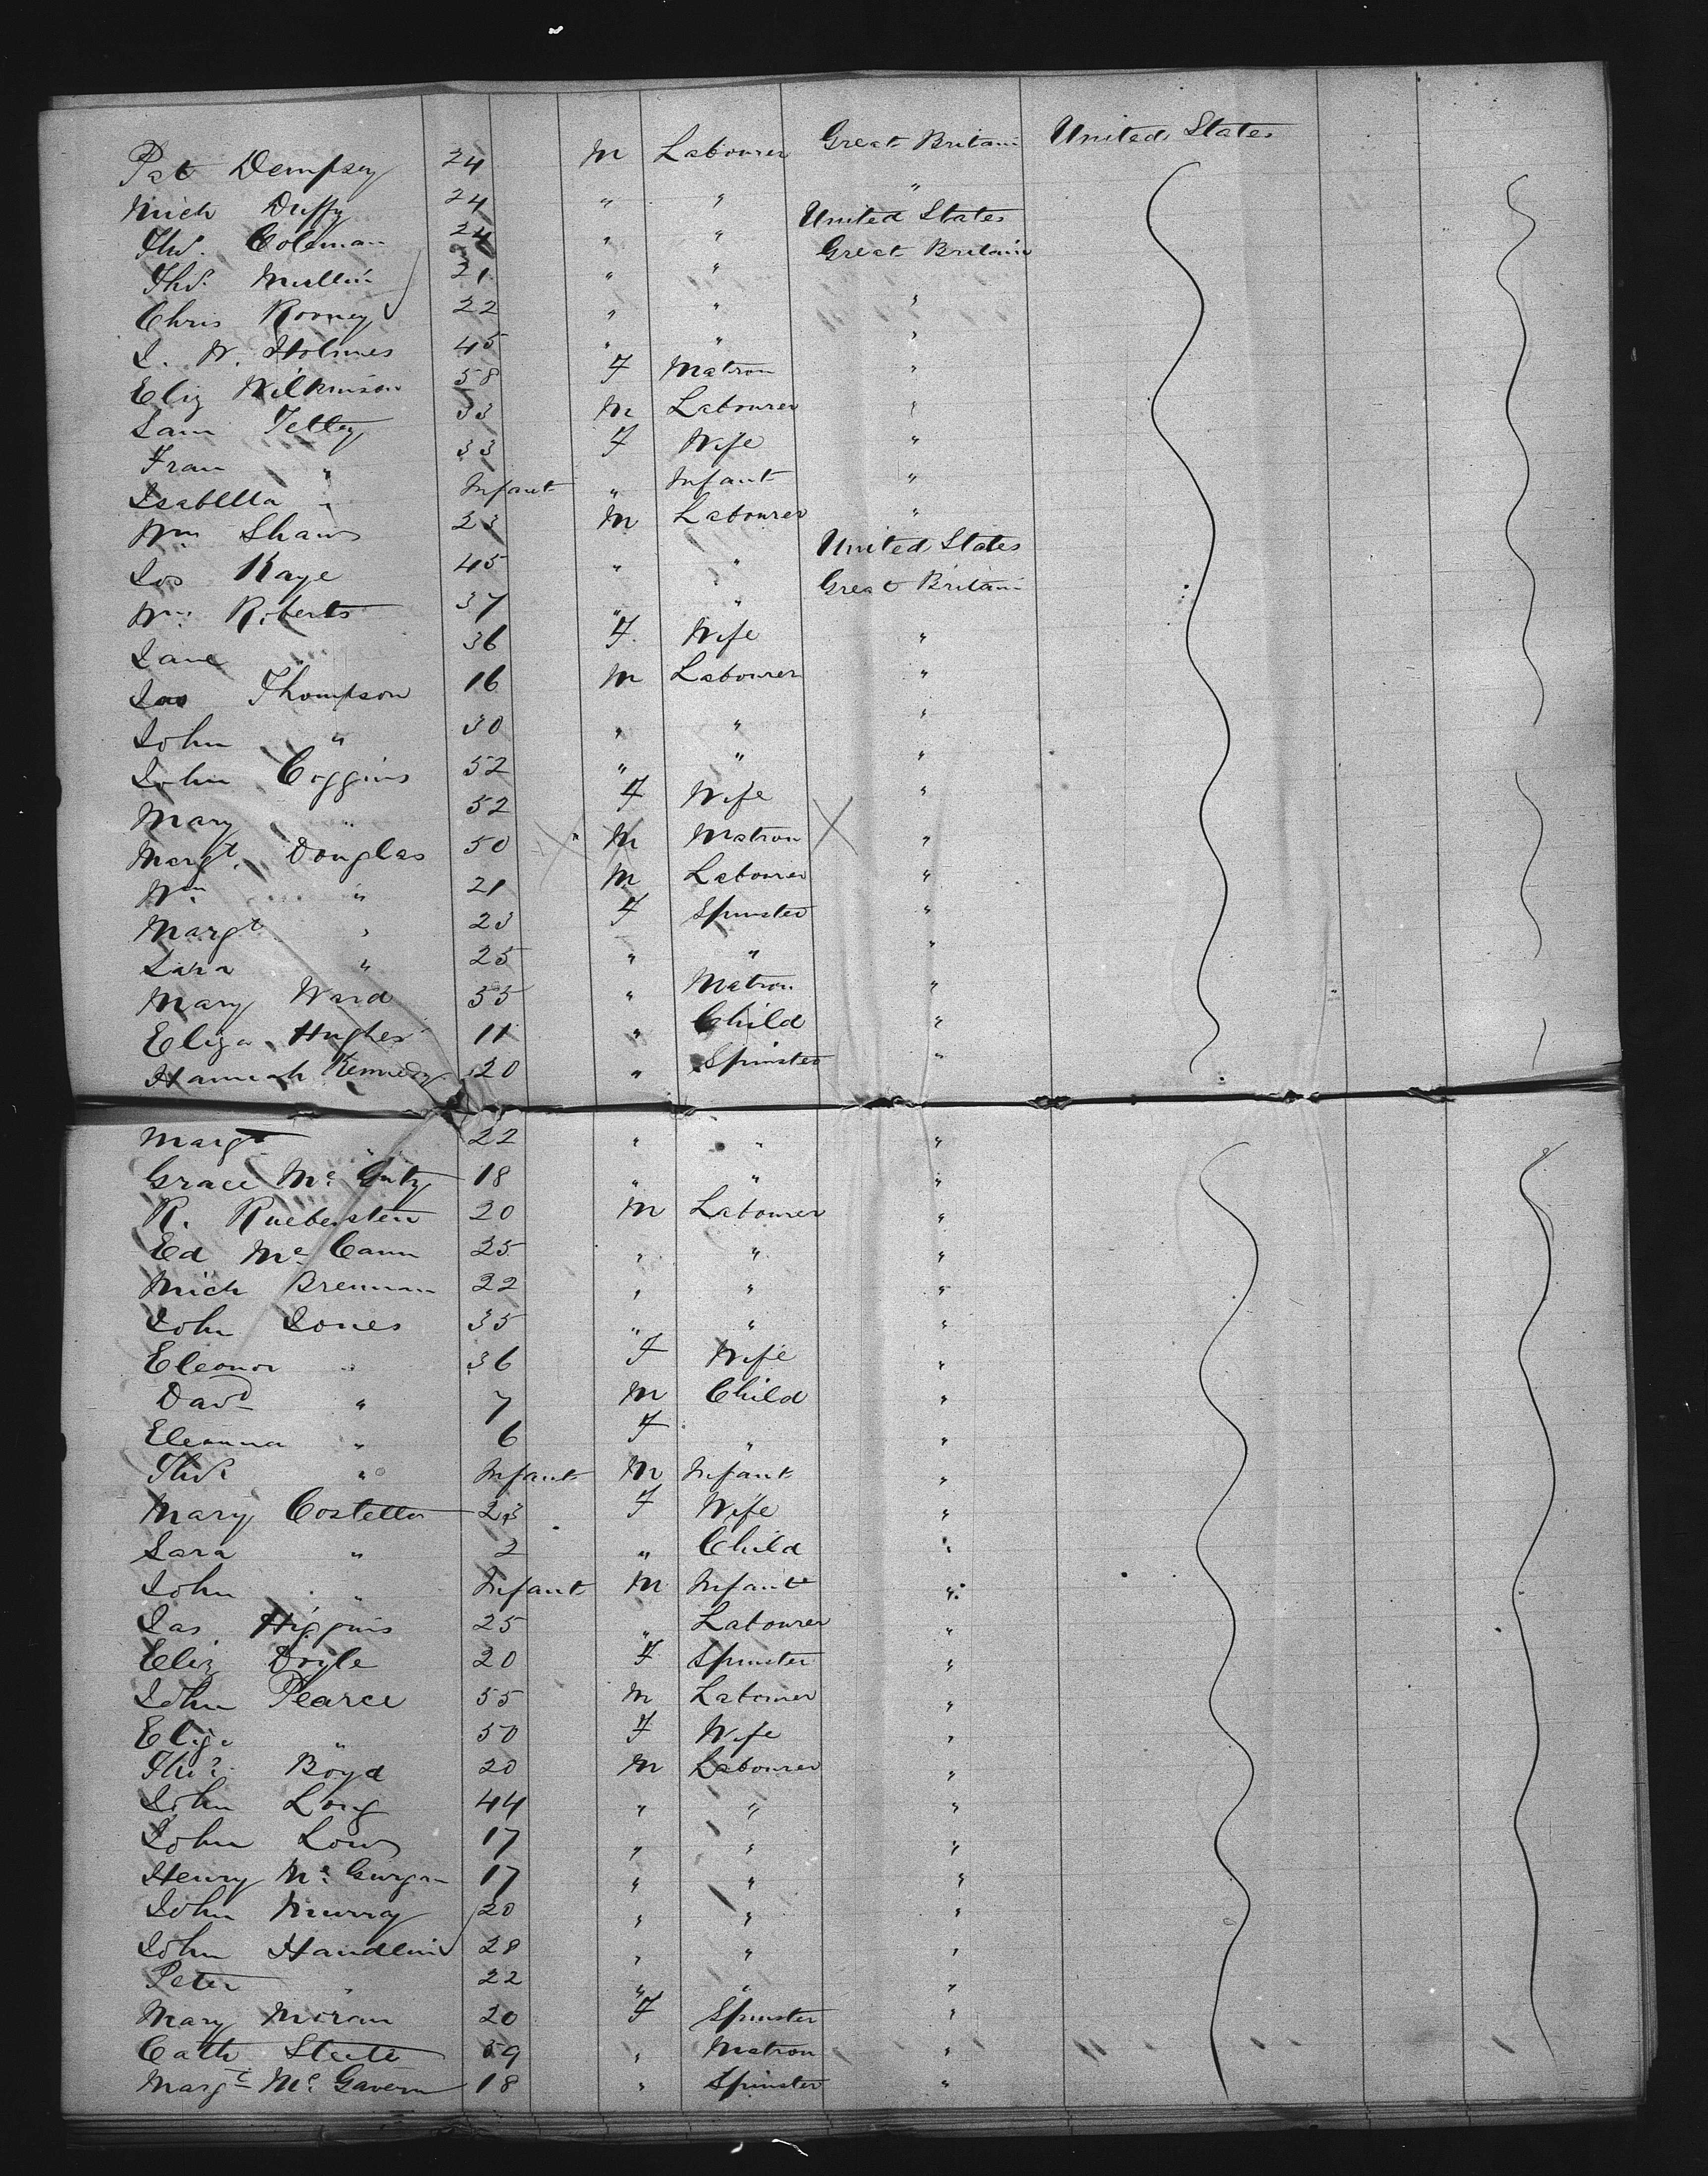 Pat Dempsey 24 M Labourer Great Britain United States
Mich Duffy 24 " " "
Thos. Coleman 24 " " United States
Thos. Mullin 21 " " Great Britain
Chris Rooney 22 " " "
J. W. Holmes 45 " " "
Eliz Wilkinson 58 F Matron "
Sam Tetley 33 M Labourer "
Fran " 33 F Wife "
Isabella " Infant " Infant "
Wm Shaw 23 M Labourer "
Jos Kaye 45 " " United States
Wm. Roberts 37 " " Great Britain
Jane " 36 F. Wife "
Jas Thompson 16 M Labourer "
John " 30 " " "
John Coggins 52 " " "
Mary " 52 F Wife "
Margt. Douglas 50 M Matron "
Wm " 21 M Labourer "
Margt " 23 F Spinster "
Sara " 25 " " "
Mary Ward 55 " Matron "
Eliza Hughes 11 " Child "
Hannah Kennedy 20 " Spinster "
Margt " 22 " " "
Grace Mc 18 " " "
R. Ruebenstein 20 M Labourer "
Ed Mc Cann 25 " " "
Mich Brennan 22 " " "
John Jones 35 " " "
Eleonor " 36 F Wife "
Davd " 7 M Child "
Eleanna " 6 F " "
Thos " Infant M Infant "
Mary Costello 23 F Wife "
Sara " 2 " Child "
John " Infant M Infant "
Jas Higgins 25 " Labourer "
Eliz Doyle 20 F Spinster "
John Pearce 55 M Labourer "
Eliza " 50 F Wife "
Thos. Boyd 20 M Labourer "
John Long 44 " " "
John Low 17 " " "
Henry Mc Gurgan 17 " " "
John Murray 20 " " "
John Handlin 28 " " "
Peter " 22 " " "
Mary Moran 20 F Spinster "
Cath Steele 59 " Matron "
Margt Mc. Gavern 18 " Spinster "